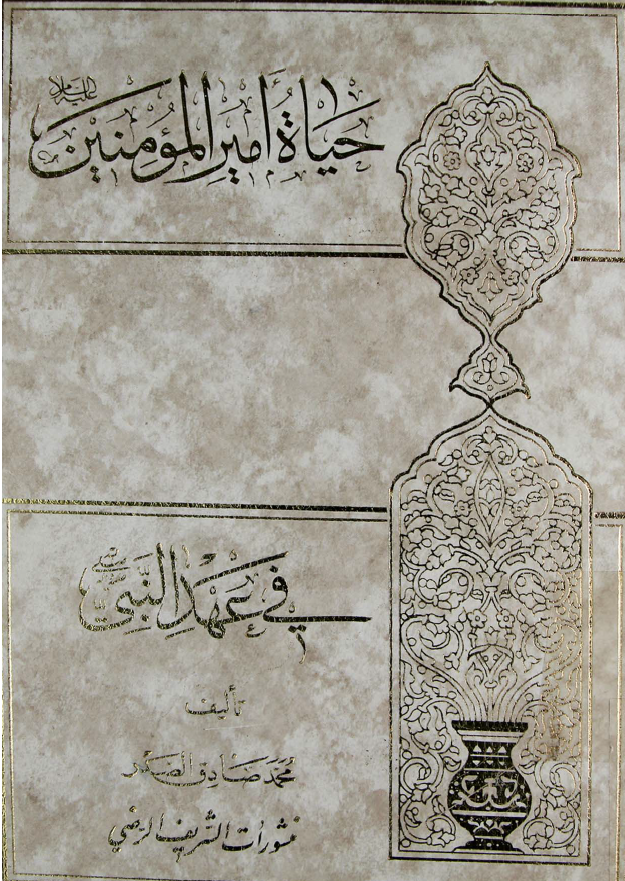 حَيَاة أَمِير المُؤمِنِين عليه السلام
في عَهدِ النَّبِي
تأليف
محمد صادق الصدر
منشورات الشريف الرضي